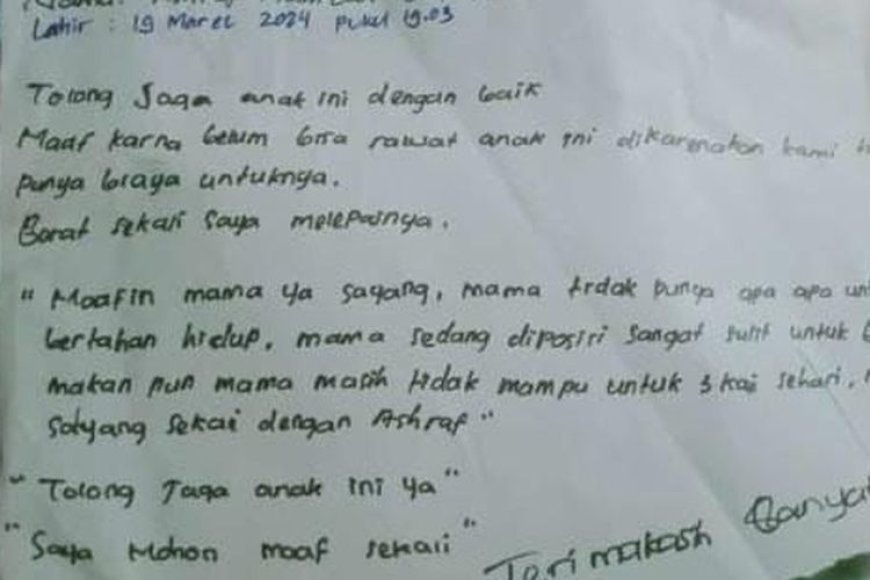 Lahir : 19 Maret 2024 pukul 19.03
Tolong Jaga anak ini dengan baik
Maaf karna belum bisa rawat anak ini dikarenakan kami
punya biaya untuknya.
Berat sekali saya melepasnya.
" Maafin mama ya sayang, mama tidak punya apa apa
bertahan hidup, mama sedang diposisi sangat sulit untuk
makan pun mama masih tidak mampu untuk 3 kali sehari,
sayang sekali dengan Ashraf "
" Tolong Jaga anak ini ya "
" Saya Mohon maaf sekali "
Terimakasih Banyak